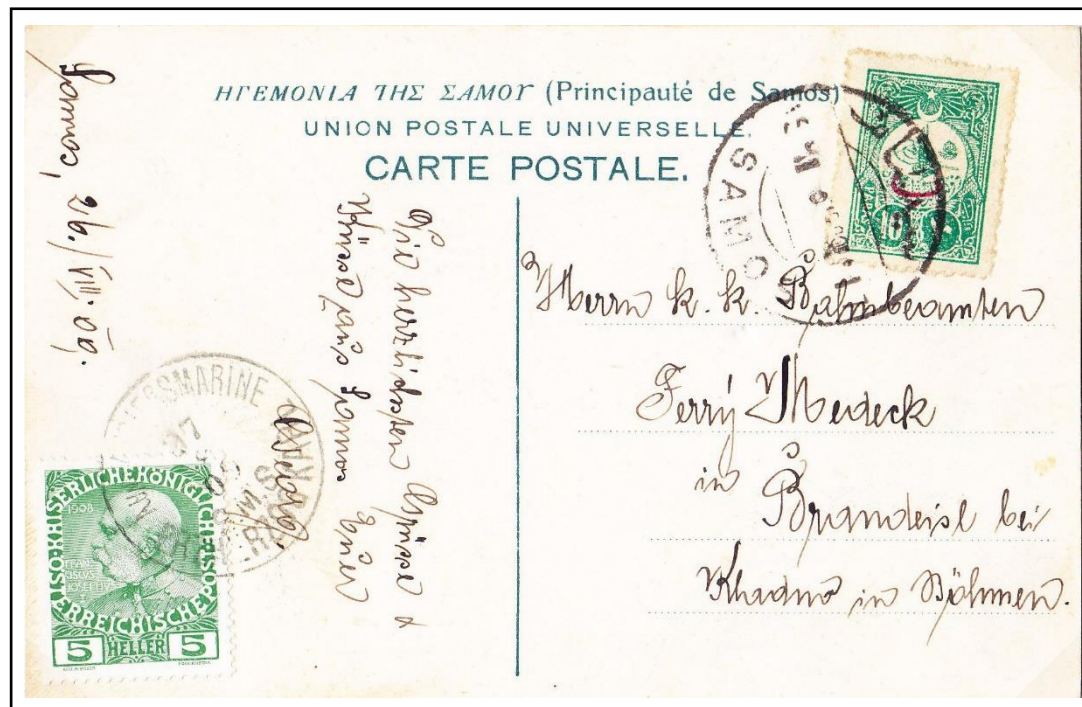 ΗΓΕΜΟΝΙΑ ΤΗΣ ΣΑΜΟΥ (Principauté de Samos)
UNION POSTALE UNIVERSELLE.
CARTE POSTALE.
Samos, 26./VIII. 09.
Die herrlichsten Grüsse &
Küsse aus Samos Euer
Herrn k. k. Bahnbeamten
Ferrý Medeck
in
Brandeisl bei
Khadno in Böhmen.
SAMOS
10 PARAS
KRIEGSMARINE
1908
KAISERLICHE KÖNIGLICHE ÖSTERREICHISCHE POST
5 HELLER 5